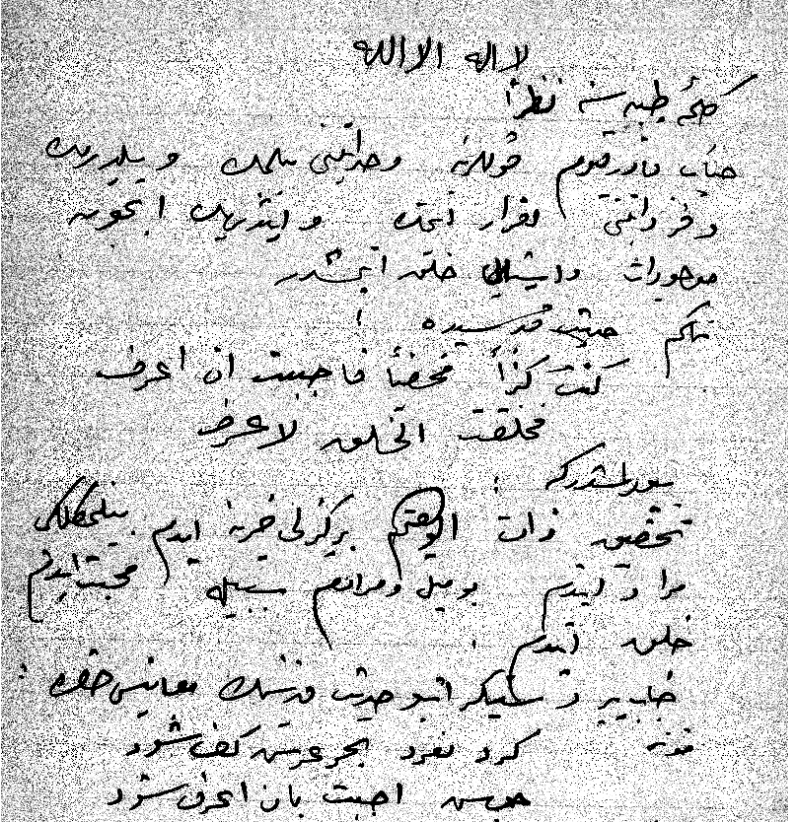 لا اله الا الله
كلمۀ طيبه سنه نظراً
جناب قادر قيوم قوللرينه وحدانيتنى بيلمك و بيلديرمك
و فردانيتنى اقرار ايتمك و ايتديرمك ايچون
موجودات و اشيايى خلق ايتمشدر
نته كم حديث قدسيده
كنت كنزاً مخفياً فاحببت ان اعرف
فخلقت الخلق لاعرف
بيورلمشدركه :
تحقيق ذات الوهيتم بر كزلى خزينه ايدم بيلنمكلكى
مراد ايتدم بو ميل و مرادم سببيله محبت ايدوب
خلق ايتدم
جناب پير دستگير اشبو حديث قدسينك معناسى حقنده :
كرد نفرد بحر عزت كف شود
احببت بان اعرف شود